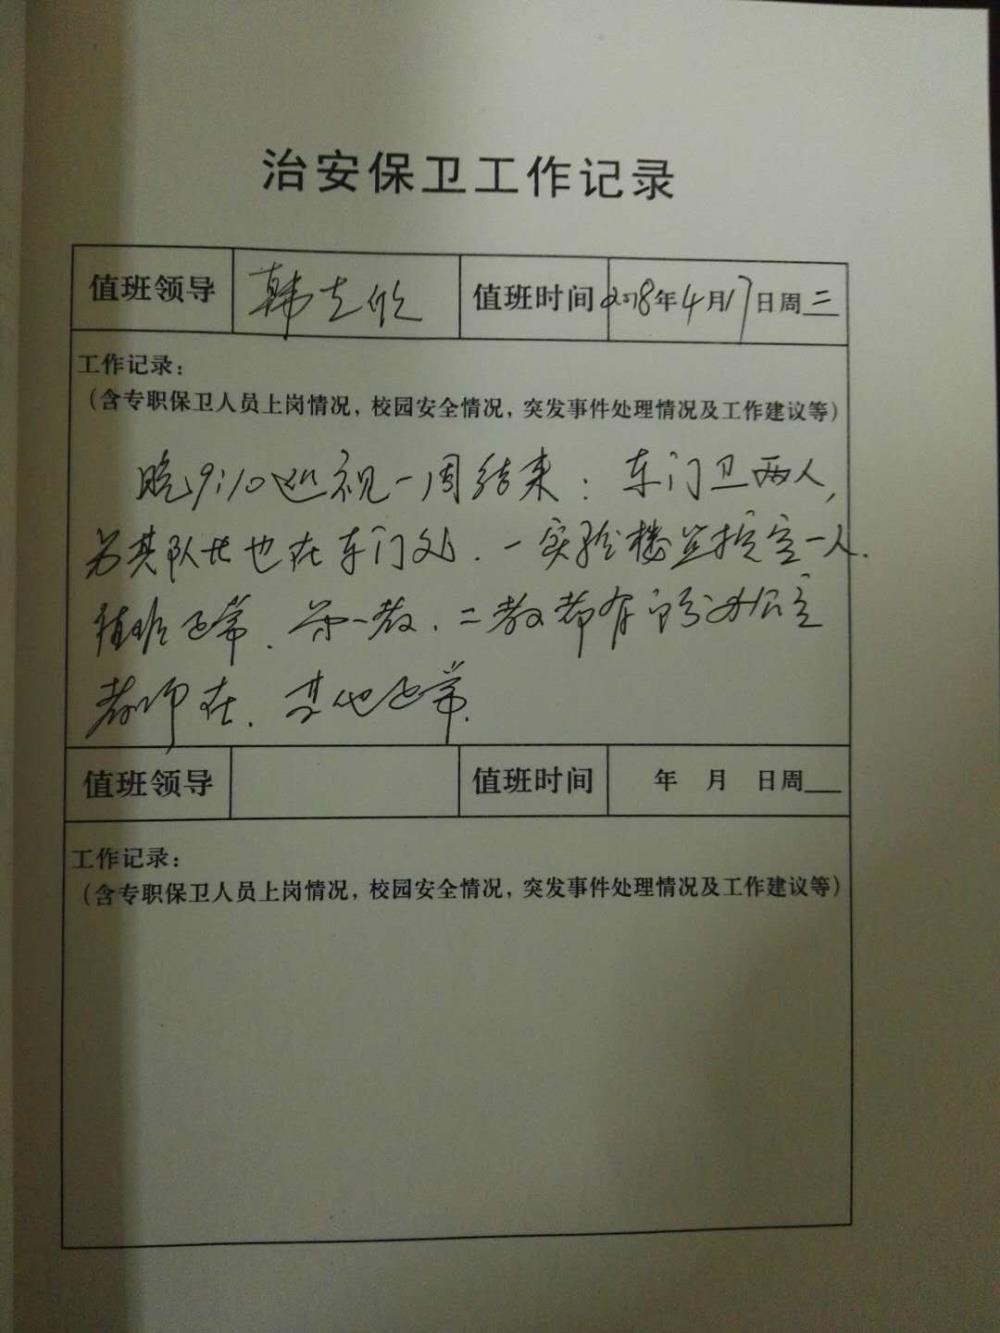 治安保卫工作记录
值班领导 韩 值班时间 2018年4月17日周二
工作记录：
（含专职保卫人员上岗情况，校园安全情况，突发事件处理情况及工作建议等）
晚9:10巡视一周结束：东门卫两人，
另其队长也在东门处．一实验楼监控室一人．
值班正常．第一教．二教都有部分办公室
教师在．其他正常．
值班领导 值班时间 年 月 日周
工作记录：
（含专职保卫人员上岗情况，校园安全情况，突发事件处理情况及工作建议等）